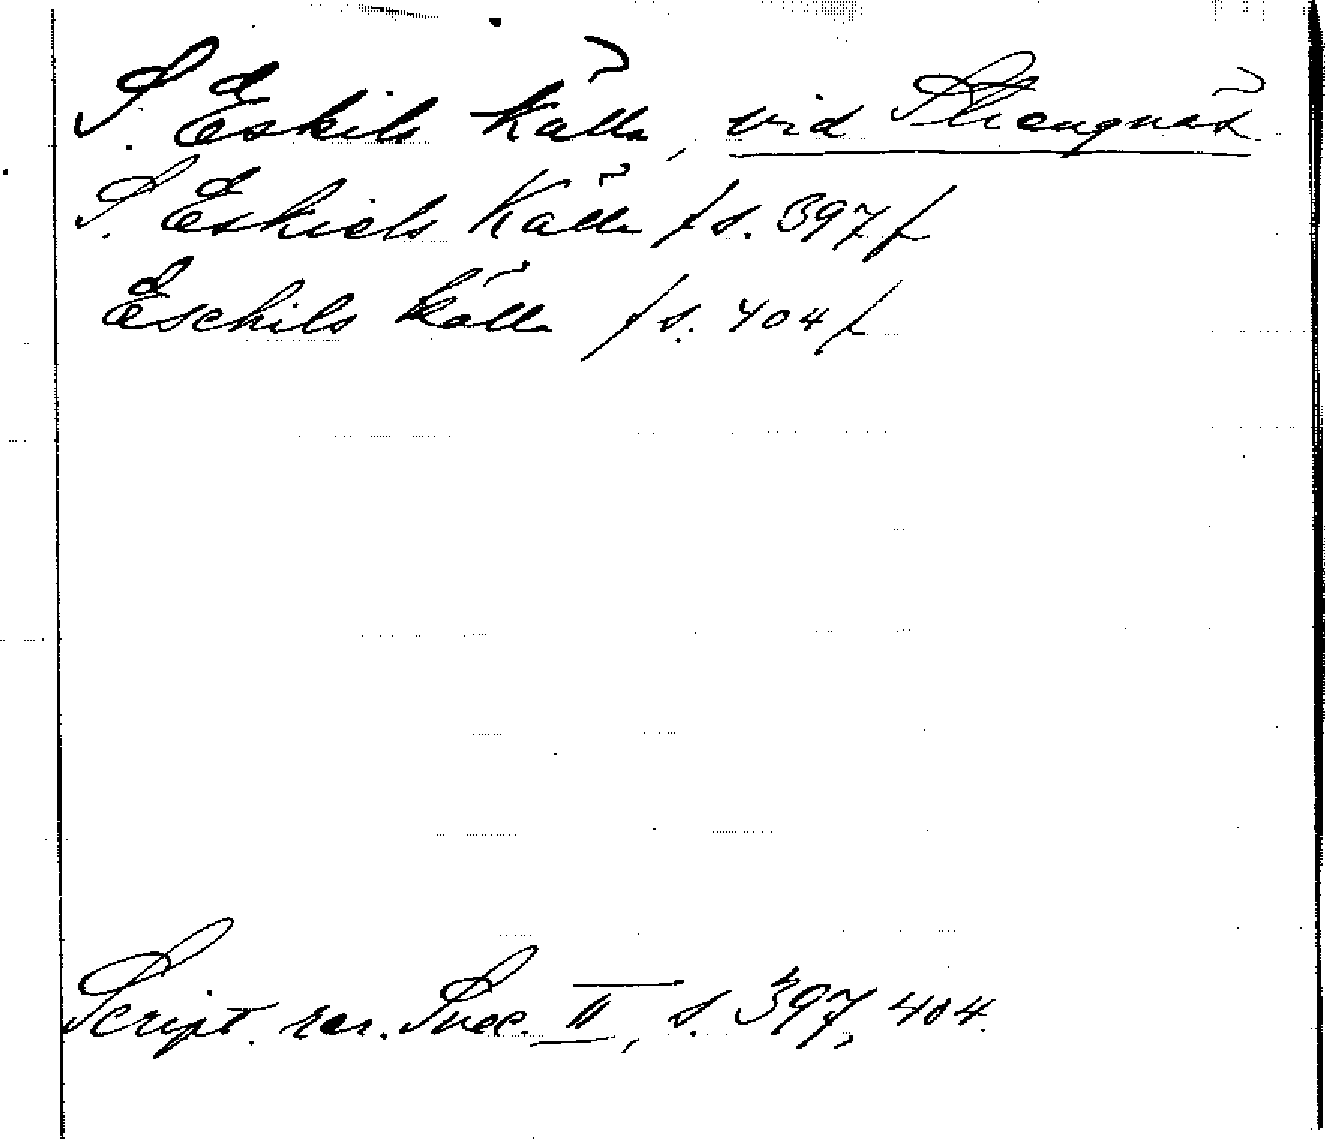 S. Eskils Källa, vid Strengnäs
S. Eskiels Källa /s. 397/
Eschils källa /s. 404/
Script. rer. Svec. II, s. 397, 404.